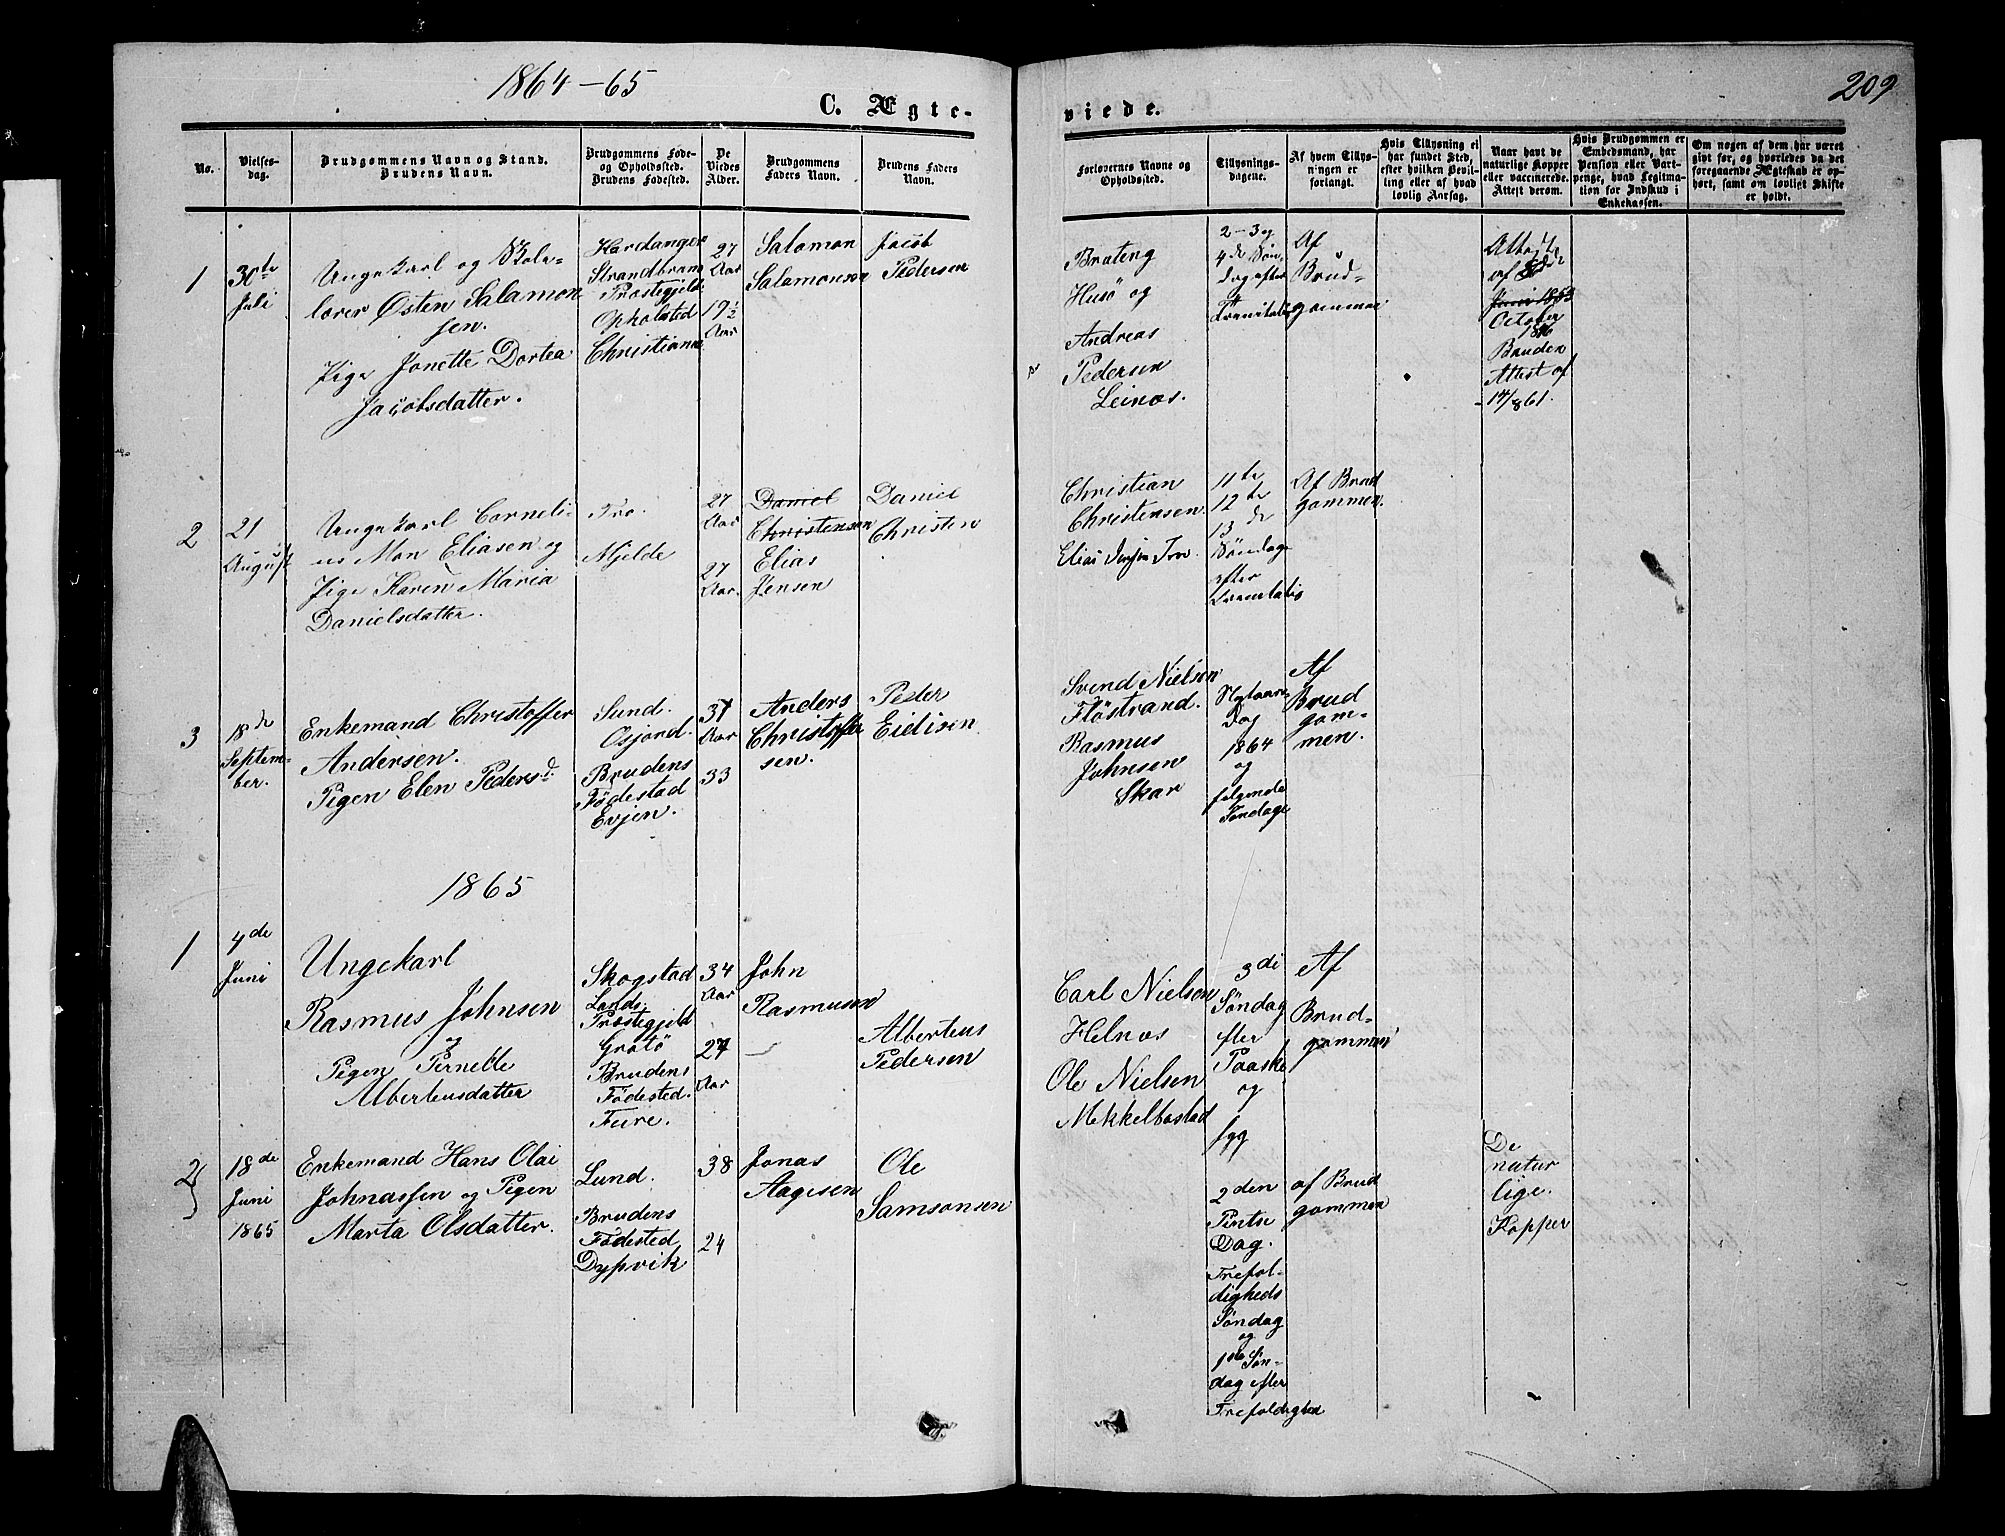 1864-65
209
C. Ægte-
viede.
No.
Vielses-
dag.
Brudgommens Navn og Stand.
Brudens Navn.
Brudgommens Føde-
og Opholdssted.
Brudens Fødested.
De
Viedes
Alder.
Brudgommens
Faders Navn.
Brudens Faders
Navn.
Forlovernes Navne og
Opholdssted.
Tillysnings-
dagene.
Af hvem Tillys-
ningen er
forlangt.
Hvis Tillysning ei
har fundet Sted,
efter hvilken Bevil-
ling eller af hvad
lovlig Aarsag.
Naar havt de
naturlige Kopper
eller vaccinerede.
Attest derom.
Hvis Brudgommen er
Embedsmand, har
Pension eller Vart-
penge, hvad Legitma-
tion for Indskud i
Enkekassen.
Om nogen af dem har været
gift før, og hvorledes da det
foregaaende Ægteskab er op-
hørt, samt om lovligt Skifte
er holdt.
1
30te
Juli
Ungekarl og Skole-
lærer Østen Salamon
sen.
Pige Jonette Dortea
Jacobsdatter.
Hardanger
Strandbram
Præstegjeld
Opholsted
27
Aar
19½
Aar
Salamon
Salamonsen
Jacob
Pedersen
Brateng
Husö og
Andreas
Pedersen
Leines.
2-3 og
4de Søn
dag efter
Trinitatis
Af
Brud-
gommen
Attest
af
Juni 1863
October
Bruden
Attest af
14/8 61.
2
21
August
Ungekarl Corneli
us Mon Eliasen og
Pige Karen Maria
Danielsdatter.
Tro.
Mjelde
27
Aar
27
Aar.
Daniel
Christensen
Elias
Jensen
Daniel
Christen
Christian
Christensen.
Elias Jensen Tro.
11te
12te
13de
Söndage
efter
Trinitatis
Af Brud
gommen.
3
18de
Septem-
ber.
Enkemand Christoffer
Andersen.
Pigen Elen Pedersd.
Sund.
Osjord.
Brudens
Födestad
Evjen.
37
Aar
33
Anders
Christoffer
sen.
Peder
Eidisen
Svend Nielsen
Flöstrand.
Rasmus
Johnsen
Skar
Nytaars
Dag
1864
og
følgende
Søndage
Af
Brud
gom-
men.
1865
1
4de
Juni
Ungekarl
Rasmus Johnsen
og
Pigen Pernelle
Alberteusdatter
Skogstad
Lands
Præstegjeld
Grotö
Brudens
Födested.
Fure.
34
Aar
27
Aar
John
Rasmusen
Alberteus
Pedersen
Carl Nielsen
Helnes
Ole Nielsen
Mekkelbostad
3di
Søndag
efter
Paaske
og
fgg
Af
Brud-
gommen
2
18de
Juni
1865
Enkemand Hans Olai
Johnassen og Pigen
Marta Olsdatter.
Lund.
Brudens
Födested
Dypvik
38
24
Jonas
Aagesen
Ole
Samsonsen
2den
Pintse
Dag.
Trefol-
digheds
Søndag
og
1ste Søn-
dag efter
Trefoldighed
af Brud
gommen
De
natur
lige.
Kopper